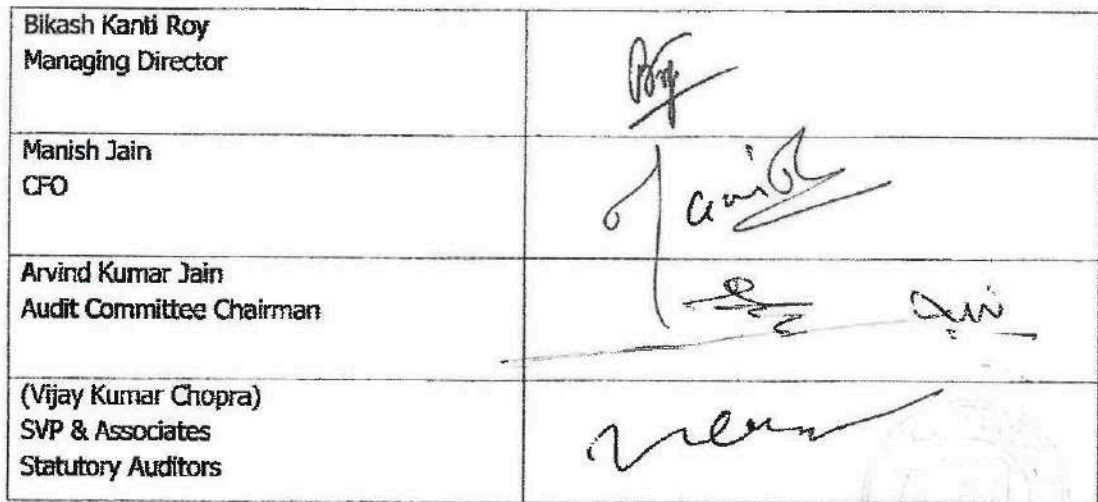 Bikash Kanti Roy
Managing Director
Manish Jain
CFO
Arvind Kumar Jain
Audit Committee Chairman
(Vijay Kumar Chopra)
SVP & Associates
Statutory Auditors